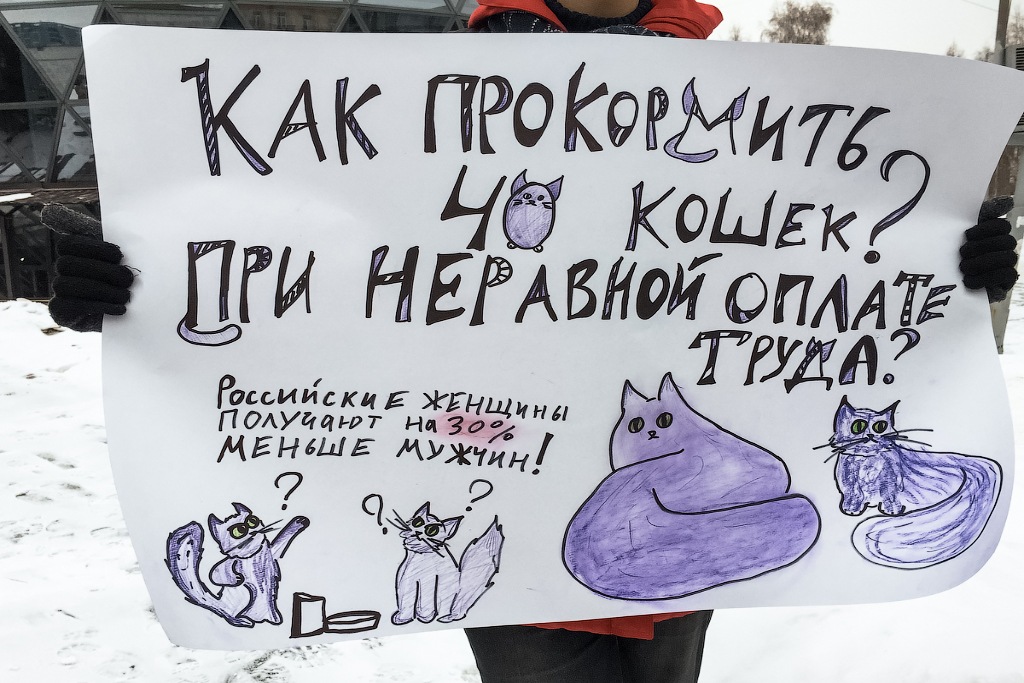 КАК ПРОКОРМИТЬ
40 КОШЕК?
ПРИ НЕРАВНОЙ ОПЛАТЕ
ТРУДА?
РОССИЙСКИЕ ЖЕНЩИНЫ
ПОЛУЧАЮТ НА 30%
МЕНЬШЕ МУЖЧИН!
? ? ?